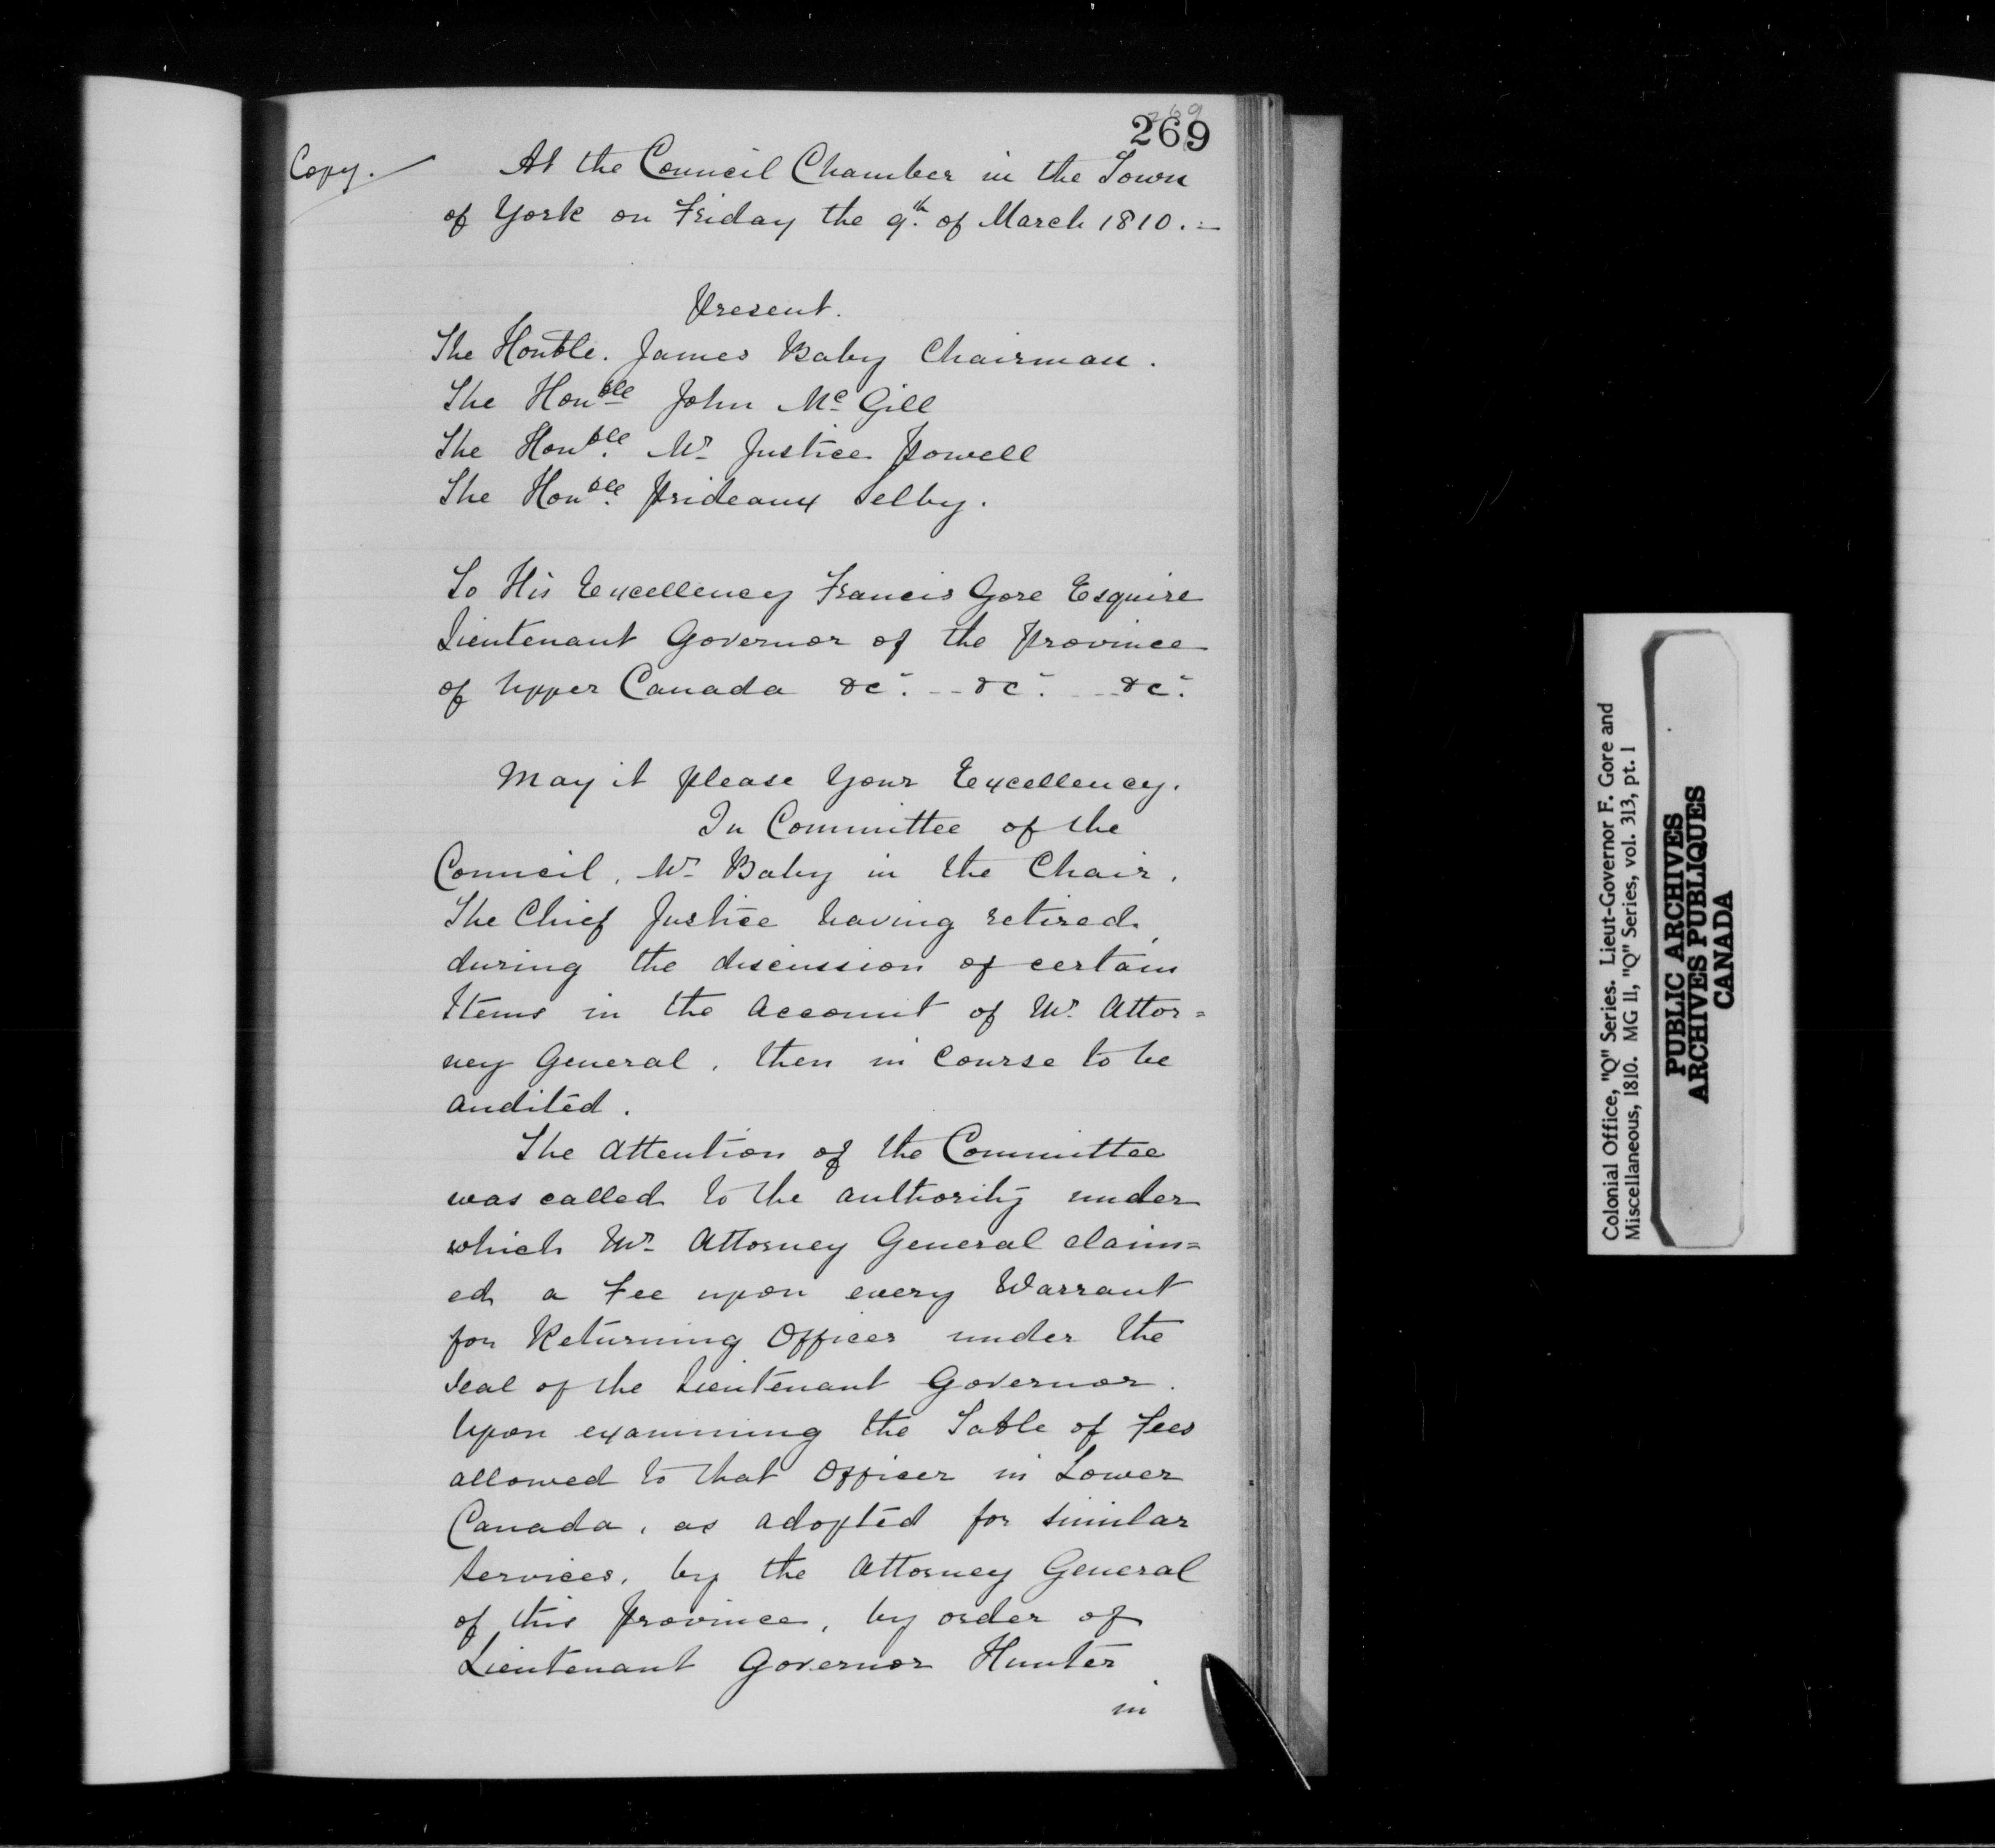 269
269
Copy.
At the Council Chamber in the Town
of York on Friday the 9th. of March 1810.=
Present.
The Honble. James Baby Chairman.
The Honble John Mc Gill
The Honble. Mr Justice Powell
The Honble. Prideaux Selby.
To His Excellency Francis Gore Esquire
Lieutenant Governor of the Province
of Upper Canada &c. -- &c. -- &c.
May it please Your Excellency.
In Committee of the
Council, Mr Baby in the Chair.
The Chief Justice having retired,
during the discussion of certain
Items in the Account of Mr. Attor=
ney General, then in Course to be
audited.
The Attention of the Committee
was called to the authority under
which Mr Attorney General claim=
ed a Fee upon every Warrant
for Returning Officer under the
Seal of the Lieutenant Governor.
Upon examining the Table of Fees
allowed to that Officer in Lower
Canada, as adopted for similar
Services, by the Attorney General
of this Province, by order of
Lieutenant Governor Hunter
in
Colonial Office, "Q" Series. Lieut-Governor F. Gore and
Miscellaneous, 1810. MG 11, "Q" Series, vol. 313, pt. 1
PUBLIC ARCHIVES
ARCHIVES PUBLIQUES
CANADA